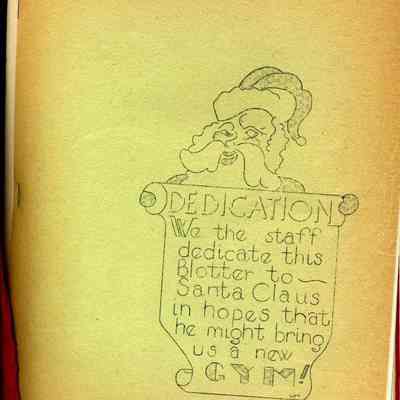 DEDICATION
We the staff
dedicate this
Blotter to —
Santa Claus
in hopes that
he might bring
us a new
GYM!